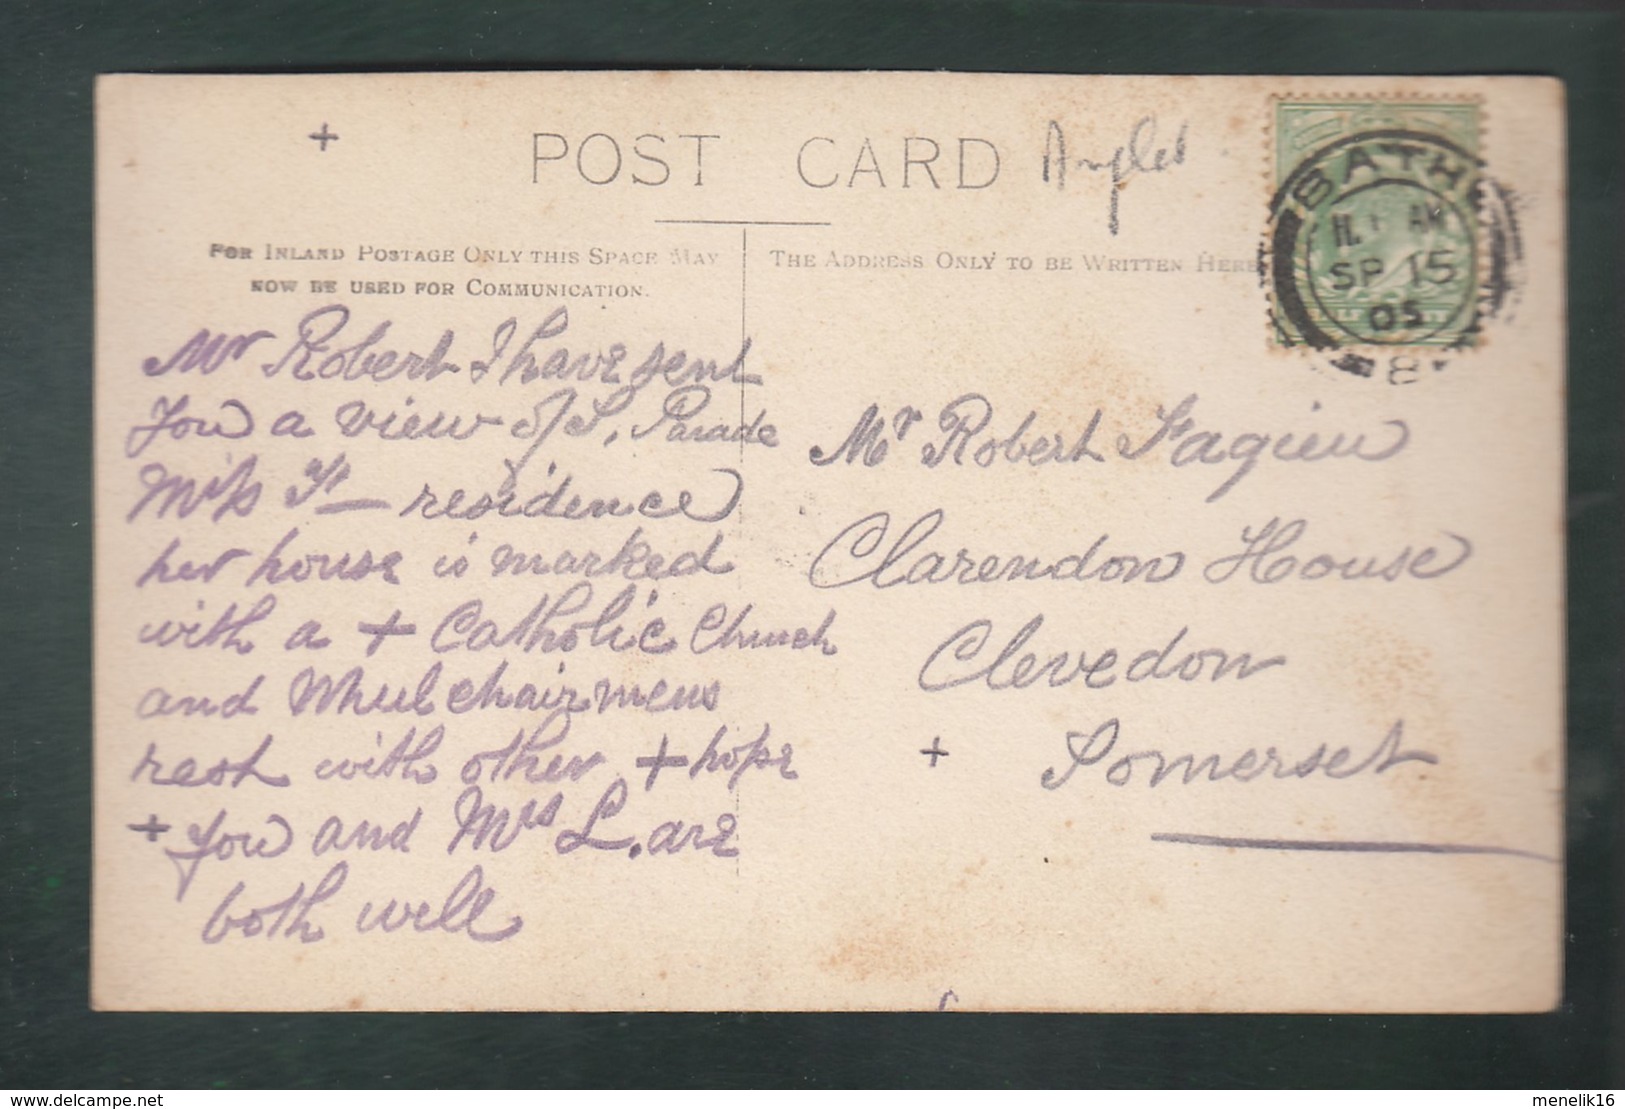 +
POST CARD
FOR INLAND POSTAGE ONLY THIS SPACE MAY
NOW BE USED FOR COMMUNICATION.
THE ADDRESS ONLY TO BE WRITTEN HERE
BATH
AM
SP 15
05
8
Mr Robert I have sent
you a view of S. Parade
Miss residence
her house is marked
with a + Catholic Church
and Wheelchairmens
rest with other + hope
+ you and Mrs L. are
both well
Mr Robert
Clarendon House
Clevedon
+ Somerset
menelik16
http://www.delcampe.net